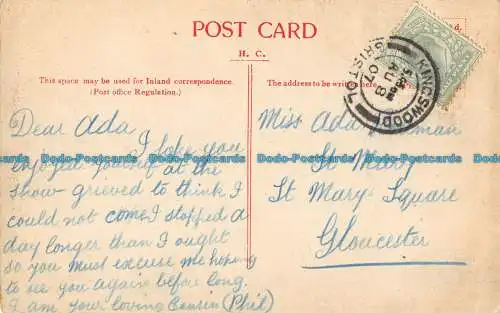 POST CARD
H. C.
This space may be used for Inland correspondence.
(Post office Regulation.)
The address to be written here.
KINGSWOOD
BRISTOL
AU 8
07
Dear Ada
I hope you
enjoyed yourself at the
show grieved to think I
could not come I stopped a
day longer than I ought
so you must excuse me hoping
to see you again before long.
I am your loving Cousin (Phil)
Miss Ada
St Mary
St Mary Square
Gloucester
Dodo-Postcards.com Dodo-Postcards.com Dodo-Postcards.com Dodo-Postcards.com Dodo-Postcards.com